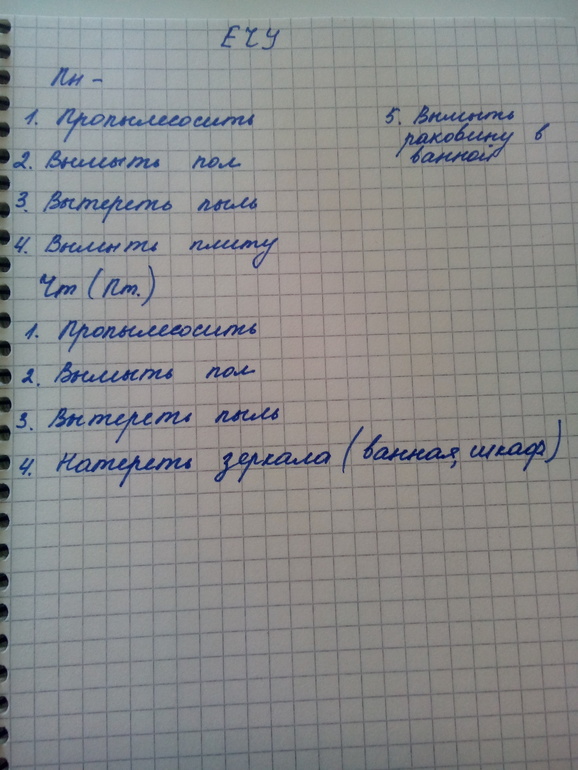 ЕЧУ
Пн -
1. Пропылесосить
2. Вымыть пол
3. Вытереть пыль
4. Вымыть плиту
5. Вымыть
раковину в
ванной
Чт (Пт.)
1. Пропылесосить
2. Вымыть пол
3. Вытереть пыль
4. Натереть зеркала (ванная, шкаф)